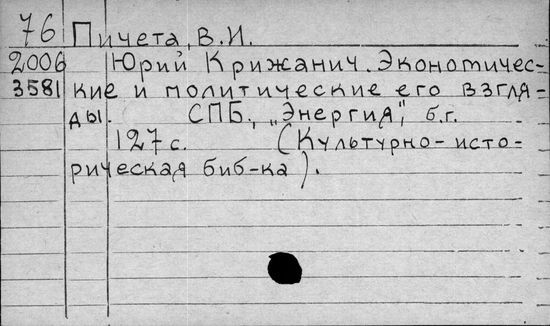 76 Пичета, В.И.
2006 Юрий Крижанич. Экономичес-
3581 кие и политические его взгля-
ды. СПБ., „Энергия", б.г.
127 с. (Культурно-исто-
рическая биб-ка).